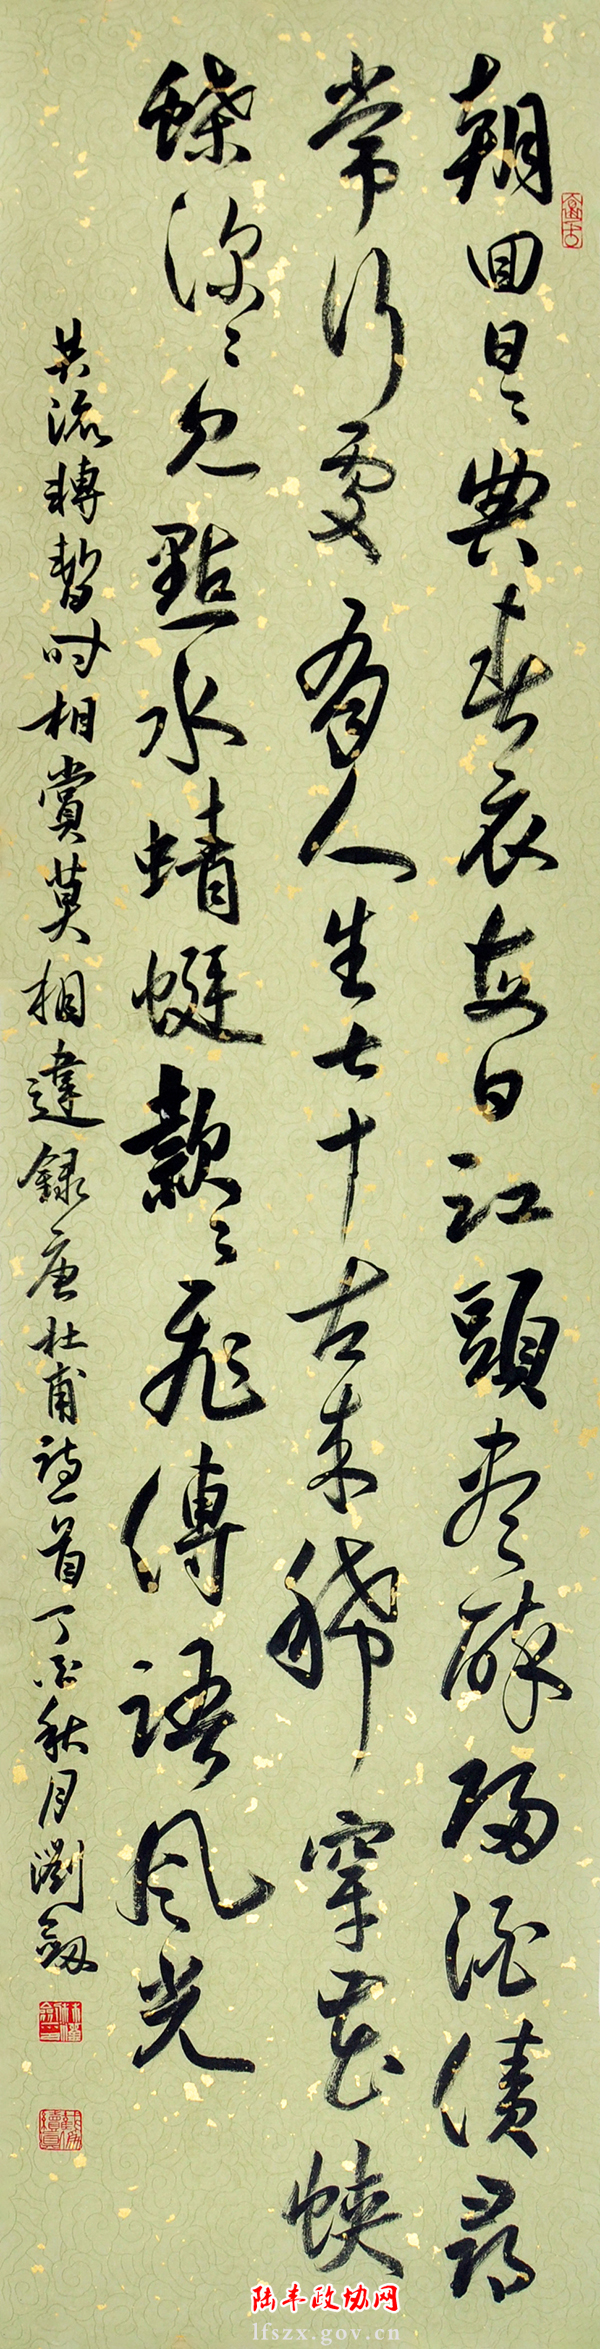 朝回日〻典春衣每日江頭尽醉歸酒債尋
常行處有人生七十古来稀穿花蛺
蝶深〻見點水蜻蜓款〻飛傳語風光
共流轉暫時相賞莫相違錄唐杜甫詩一首丁酉秋月瀏劍
陆丰政协网
lfszx.gov.cn